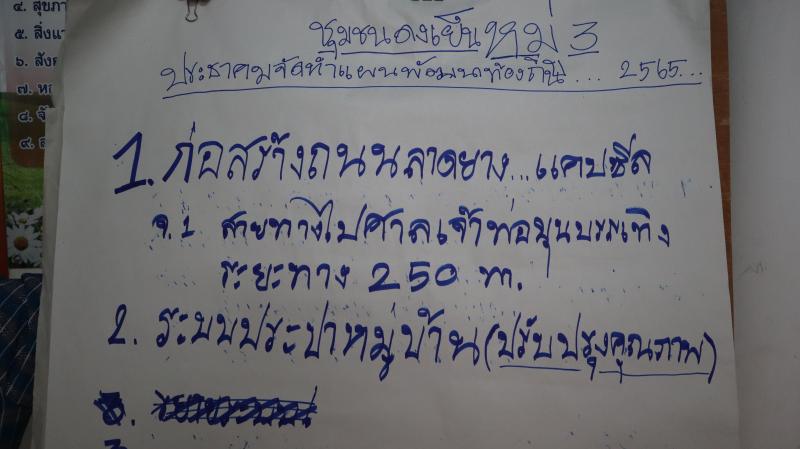 ๔. สุขภา
๕. สิ่งแ
๖. สังค
๗. ห
๘. จั
๙.
ชุมชนดงเย็น หมู่ 3
ประชาคมจัดทำแผนพัฒนาท้องถิ่น... 2565...
1. ก่อสร้างถนนลาดยาง...แคปซีล
1.1 สายทางไปศาลเจ้าพ่อขุนบรรเทิง
ระยะทาง 250 ม.
2. ระบบประปาหมู่บ้าน (ปรับปรุงคุณภาพ)
3.